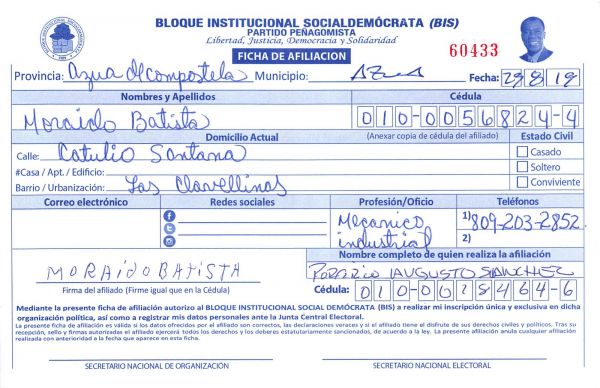 BLOQUE INSTITUCIONAL SOCIALDEMÓCRATA (BIS)
PARTIDO PEÑAGOMISTA
Libertad, Justicia, Democracia y Solidaridad
FICHA DE AFILIACION
60433
Provincia: Azua de compostela Municipio: AZUA Fecha: 29/8/19
Nombres y Apellidos Cédula
Moraido Batista 010-0056824-4
Domicilio Actual (Anexar copia de cédula del afiliado) Estado Civil
Calle: Catulio Santana Casado
#Casa / Apt. / Edificio: Soltero
Barrio / Urbanización: Las Clavellinas Conviviente
Correo electrónico Redes sociales Profesión/Oficio Teléfonos
Mecanico industrial 1) 809-203-2852
2)
Nombre completo de quien realiza la afiliación
MORAIDO BATISTA
Firma del afiliado (Firme igual que en la Cédula) Cédula: 010-0018464-6
Mediante la presente ficha de afiliación autorizo al BLOQUE INSTITUCIONAL SOCIAL DEMÓCRATA (BIS) a realizar mi inscripción única y exclusiva en dicha
organización política, así como a registrar mis datos personales ante la Junta Central Electoral.
La presente ficha de afiliación es válida si los datos ofrecidos por el afiliado son correctos, las declaraciones veraces y si el afiliado tiene el disfrute de sus derechos civiles y políticos. Tras su
recepción, sello y firmas autorizadas el afiliado ejercerá todos los derechos y los deberes estatutariamente sancionados, de acuerdo a la ley. La presente afiliación anula cualquier afiliación
realizada con anterioridad a la fecha que aparece en esta ficha.
SECRETARIO NACIONAL DE ORGANIZACIÓN SECRETARIO NACIONAL ELECTORAL